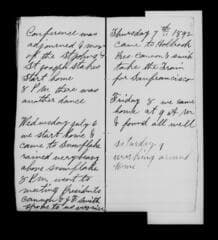 Conference was
adjourned & most
of the St Johns &
St Joseph Stakes
start home
8 P.M. there was
another dance
Wednesday July 6
we start home &
came to Snowflake
rained very heavy
above snowflake
8 P.M. went to
meeting Presidents
Cannon & J F Smith
spoke to us
Thursday 7th. 1892
Came to Holbrook
Pres Cannon & Smith
take the train
for Sanfrancisco
Friday 8 we came
home at 9 A M
& found all well
Saturday 9
working around
home